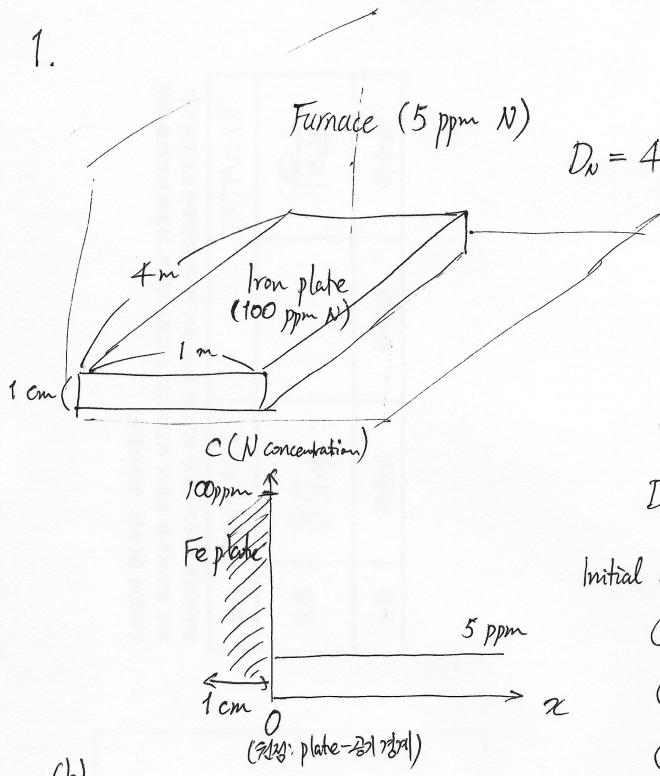 1.
Furnace (5 ppm N)
D_N = 4
4 m
Iron plate
(100 ppm N)
1 m
1 cm
C (N concentration)
100ppm
Fe plate
D
Initial
5 ppm
(
1 cm
x
0
(원점: plate-공기 경계)
(b)